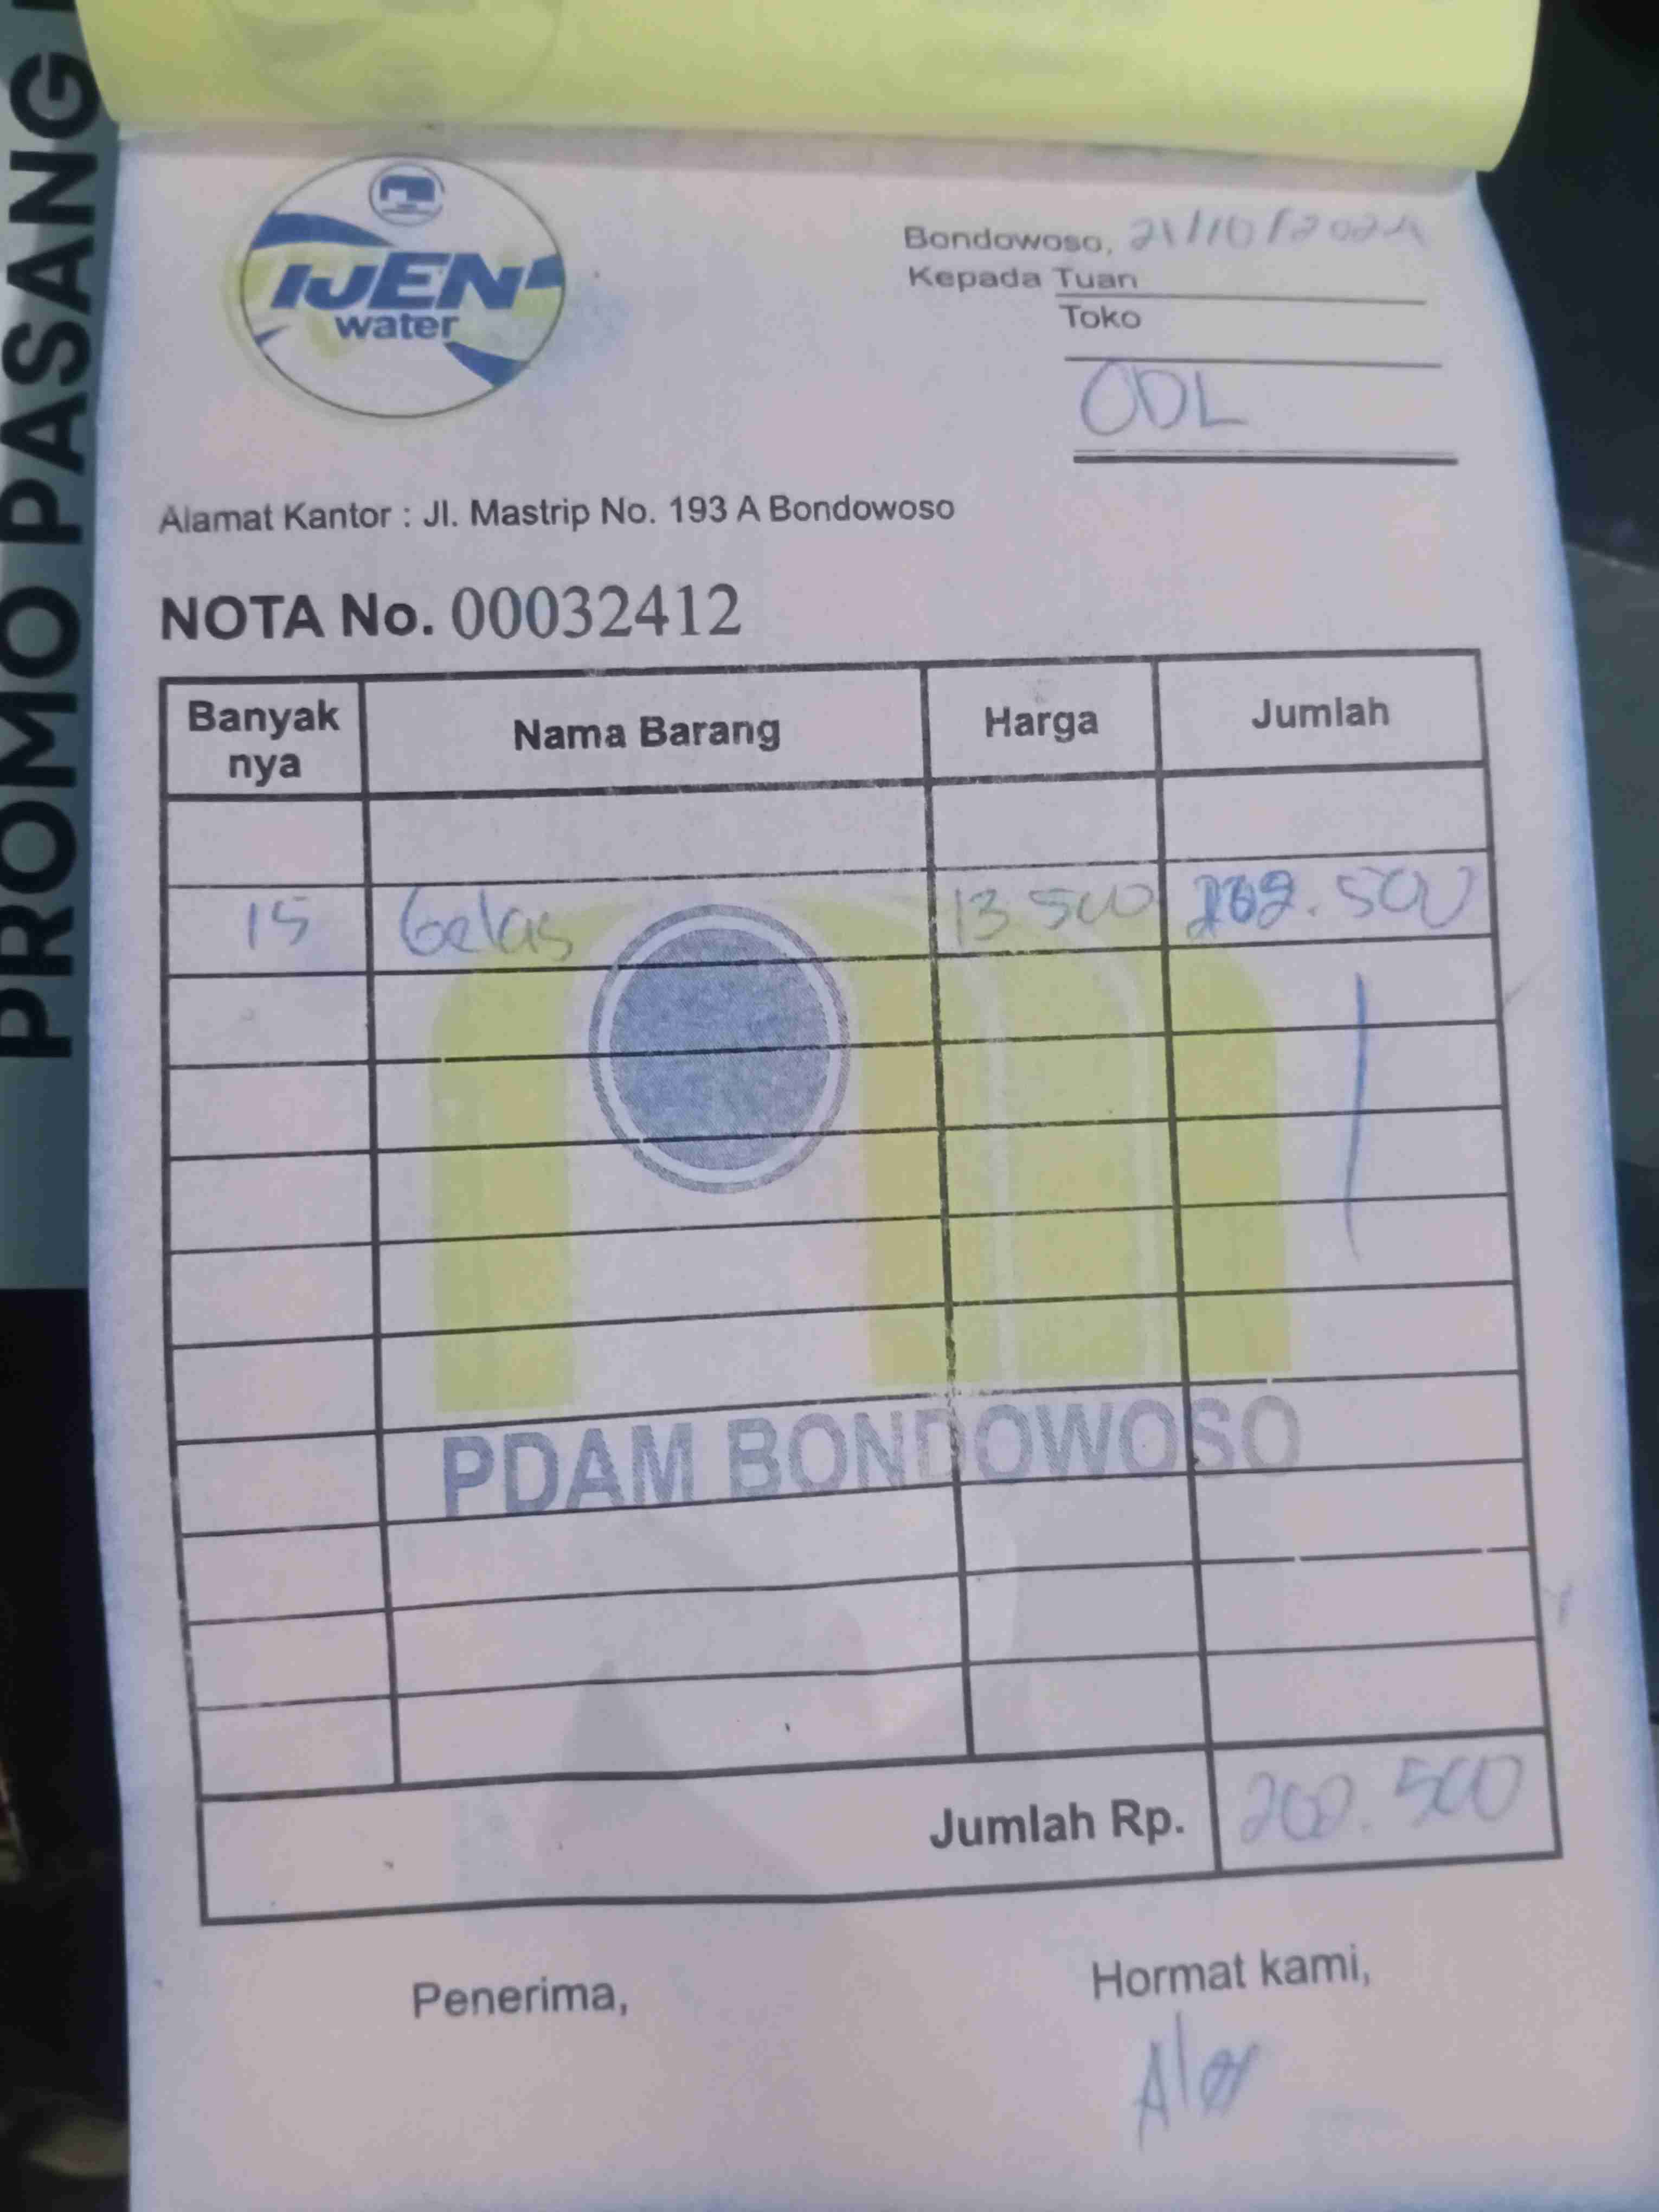 PROMO PASANG
IJEN
water
Bondowoso, 21/10/2024
Kepada Tuan
Toko
ODL
Alamat Kantor : Jl. Mastrip No. 193 A Bondowoso
NOTA No. 00032412
Banyak nya Nama Barang Harga Jumlah
15 Gelas 13.500 202.500
PDAM BONDOWOSO
Jumlah Rp. 202.500
Penerima, Hormat kami,